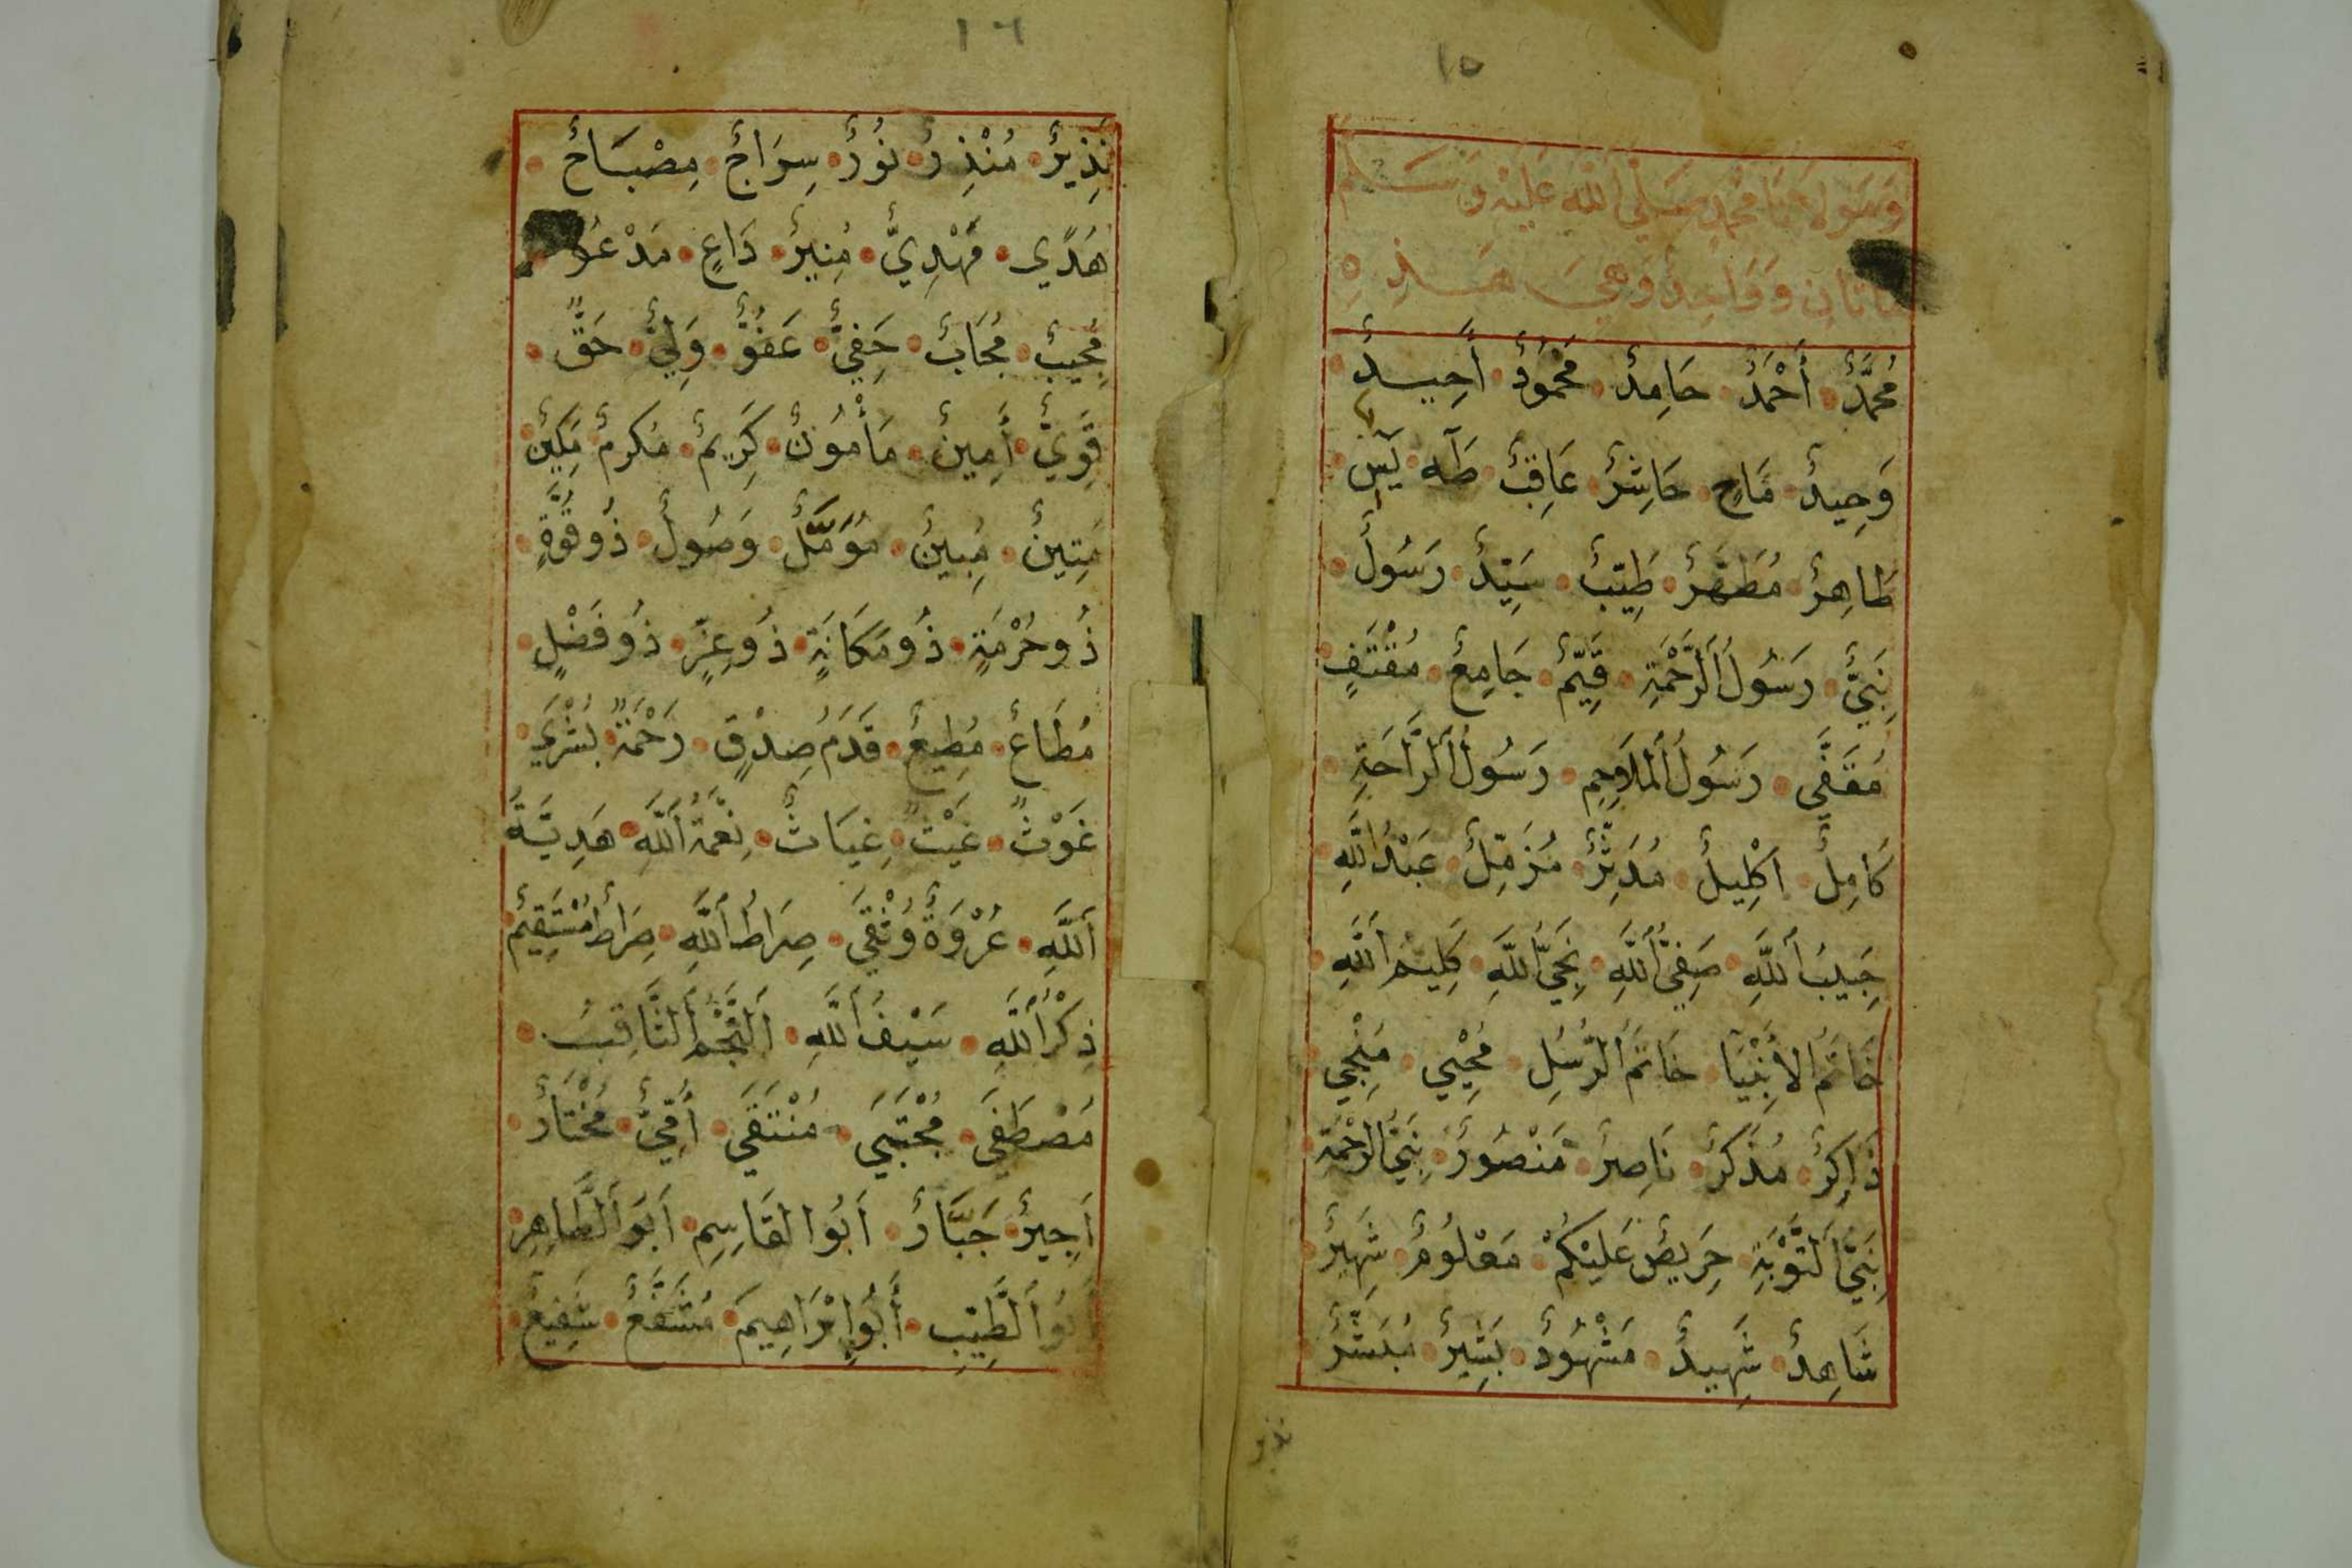 ١٥
محمد صَلَّى اللهُ عَلَيْهِ وَسَلَّم
وَوَاحِدٌ وَهِيَ هَـــذِه
مُحَمَّدٌ أَحْمَدُ حَامِدٌ مَحْمُودٌ أَحِيدٌ
وَحِيدٌ مَاحٍ حَاشِرٌ عَاقِبٌ طَهَ يَس
طَاهِرٌ مُطَهَّرٌ طَيِّبٌ سَيِّدٌ رَسُولٌ
نَبِيٌّ رَسُولُ الرَّحْمَةِ قَيِّمٌ جَامِعٌ مُقْتَفٍ
مُقَفَّي رَسُولُ الْمَلَاحِمِ رَسُولُ الرَّاحَةِ
كَامِلٌ اكْلِيلٌ مُدَثِّرٌ مُزَمِّلٌ عَبْدُ اللَّهِ
حَبِيبُ اللَّهِ صَفِيُّ اللَّهِ نَجِيُّ اللَّهِ كَلِيمُ اللَّهِ
خَاتَمُ الْأَنْبِيَا خَاتَمُ الرُّسُلِ مُحْيِي مُنْجِي
ذَاكِرٌ مُذَكِّرٌ نَاصِرٌ مَنْصُورٌ نَبِيُّ الرَّحْمَةِ
نَبِيُّ التَّوْبَةِ حَرِيصٌ عَلَيْكُمْ مَعْلُومٌ شَهِيرٌ
شَاهِدٌ شَهِيدٌ مَشْهُودٌ بَشِيرٌ مُبَشِّرٌ
نذير
١٦
نَذِيرٌ مُنْذِرٌ نُورٌ سِرَاجٌ مِصْبَاحٌ
هُدًي مَهْدِيٌّ مُنِيرٌ دَاعٍ مَدْعُو
مُجِيبٌ مُجَابٌ حَفِيٌّ عَفُوٌّ وَلِيٌّ حَقٌّ
قَوِيٌّ أَمِينٌ مَأْمُونٌ كَرِيمٌ مُكَرَّمٌ مَكِينٌ
مَتِينٌ مُبِينٌ مُؤَمَّلٌ وَصُولٌ ذُو قُوَّةٍ
ذُو حُرْمَةٍ ذُو مَكَانَةٍ ذُو عِزٍّ ذُو فَضْلٍ
مُطَاعٌ مُطِيعٌ قَدَمُ صِدْقٍ رَحْمَةٌ بُشْرَي
غَوْثٌ غَيْثٌ غِيَاثٌ نِعْمَةُ اللَّهِ هَدِيَّةُ
اللَّهِ عُرْوَةٌ وُثْقَي صِرَاطُ اللَّهِ صِرَاطٌ مُسْتَقِيمٌ
ذِكْرُ اللَّهِ سَيْفُ اللَّهِ النَّجْمُ الثَّاقِبُ
مُصْطَفَي مُجْتَبَي مُنْتَقَي أُمِّيٌّ مُخْتَارٌ
أَجِيرٌ جَبَّارٌ أَبُو القَاسِمِ أَبُو الطَّاهِرِ
أَبُو الطَّيِّبِ أَبُو إِبْرَاهِيمَ مُشَفَّعٌ شَفِيعٌ